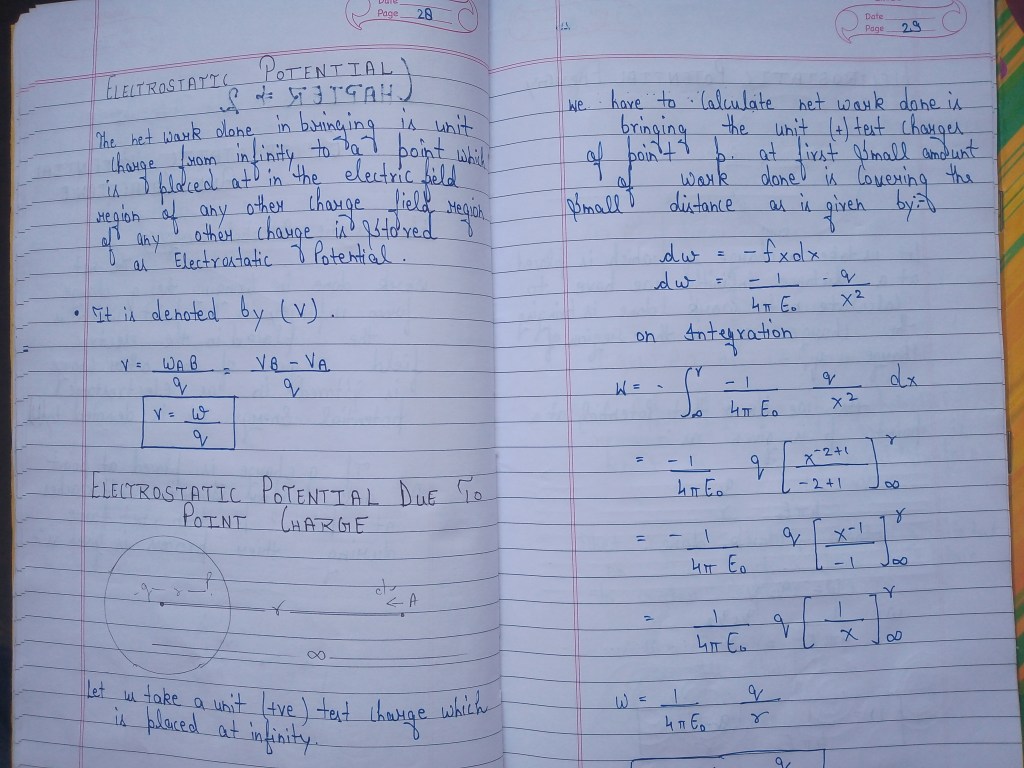 Date
Page 28
ELECTROSTATIC POTENTIAL
CHAPTER => 2
The net wark done in bringing is unit
charge from infinity to a point which
is placed at in the electric field
region of any other charge field region
of any other charge is stored
as Electrostatic Potential.
• It is denoted by (V).
V = WAB/q = VB - VA/q
V = w/q
ELECTROSTATIC POTENTIAL DUE TO
POINT CHARGE
-q - r - P.
r
dx
← A
∞
Let us take a unit (+ve) test charge which
is placed at infinity.
Date
Page 29
We have to calculate net wark done is
bringing the unit (+) test charges
of point p. at first small amount
of wark done is covering the
small distance as is given by:-
dw = -f x dx
dw = -1/4π E₀ · q/x²
on Integration
W = - ∫∞^r -1/4π E₀ q/x² dx
= -1/4π E₀ q [x^-2+1/-2+1]∞^r
= - 1/4π E₀ q [x^-1/-1]∞^r
= 1/4π E₀ q [1/x]∞^r
W = 1/4π E₀ q/r
q